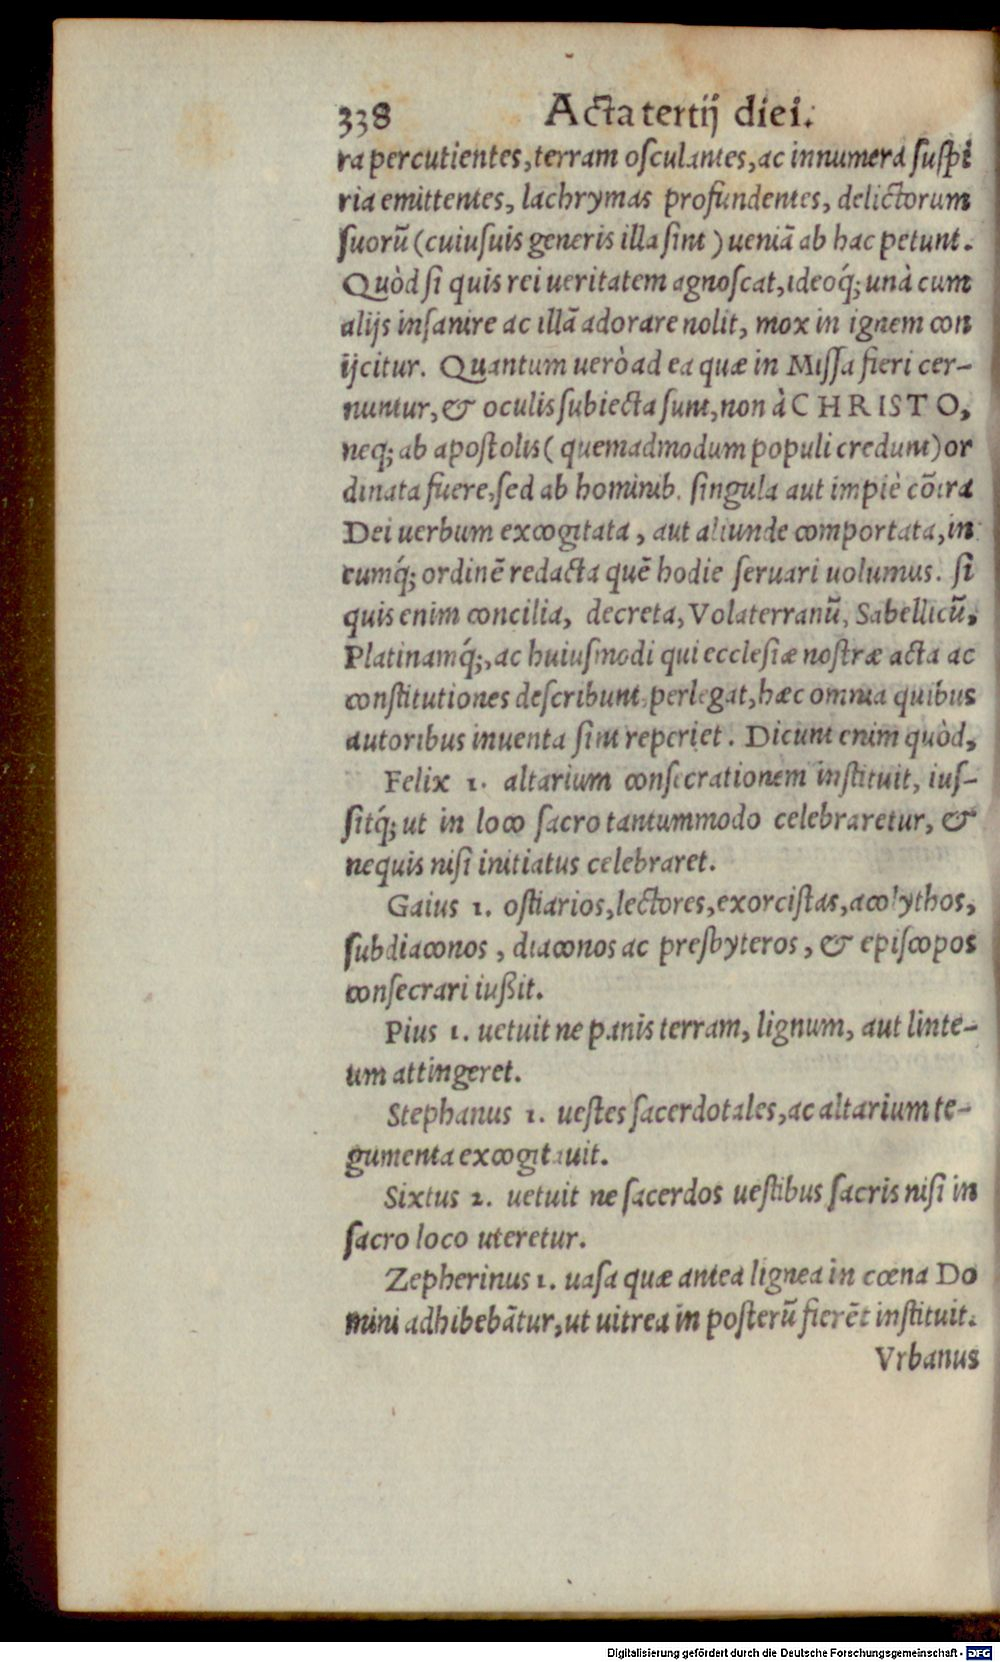 338 Acta tertij diei.
ra percutientes, terram osculantes, ac innumera suspi
ria emittentes, lachrymas profundentes, delictorum
suorũ (cuiusuis generis illa sint) ueniã ab hac petunt.
Quòd si quis rei ueritatem agnoscat, ideoq́; unà cum
alijs insanire ac illã adorare nolit, mox in ignem con
ijcitur. Quantum uerò ad ea quæ in Missa fieri cer-
nuntur, & oculis subiecta sunt, non à CHRISTO,
neq; ab apostolis (quemadmodum populi credunt) or
dinata fuere, sed ab hominib. singula aut impiè cõtra
Dei uerbum excogitata, aut aliunde comportata, in
eumq́; ordinẽ redacta quẽ hodie seruari uolumus. si
quis enim concilia, decreta, Volaterranũ, Sabellicũ,
Platinamq́;, ac huiusmodi qui ecclesiæ nostræ acta ac
constitutiones describunt, perlegat, hæc omnia quibus
autoribus inuenta sint reperiet. Dicunt enim quòd,
Felix 1. altarium consecrationem instituit, ius-
sitq́; ut in loco sacro tantummodo celebraretur, &
nequis nisi initiatus celebraret.
Gaius 1. ostiarios, lectores, exorcistas, acolythos,
subdiaconos, diaconos ac presbyteros, & episcopos
consecrari iußit.
Pius 1. uetuit ne panis terram, lignum, aut linte-
um attingeret.
Stephanus 1. uestes sacerdotales, ac altarium te-
gumenta excogitauit.
Sixtus 2. uetuit ne sacerdos uestibus sacris nisi in
sacro loco uteretur.
Zepherinus 1. uasa quæ antea lignea in cœna Do
mini adhibebãtur, ut uitrea in posterũ fierẽt instituit.
Vrbanus
Digitalisierung gefördert durch die Deutsche Forschungsgemeinschaft - DFG